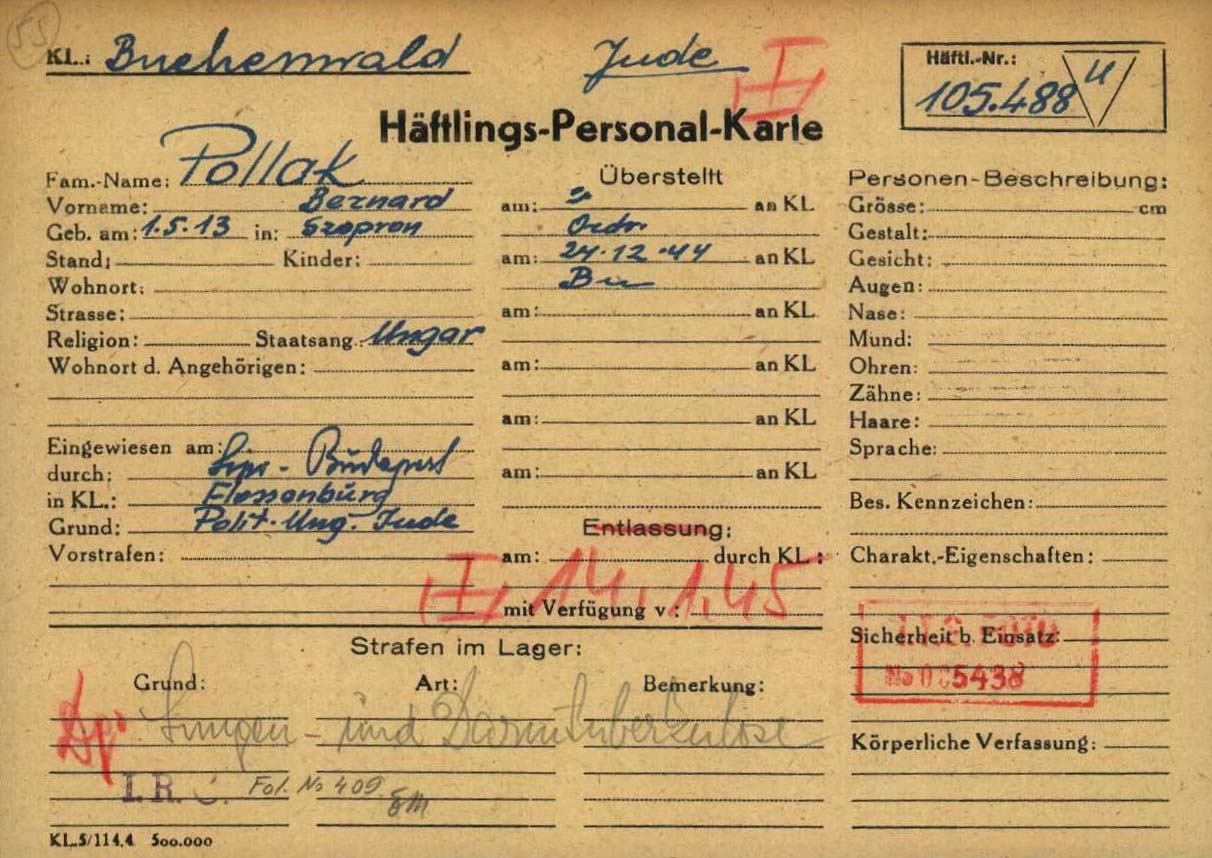 55
KL.: Buchenwald Jude I
Häftl.-Nr.:
105.488 U
Häftlings-Personal-Karte
Fam.-Name: Pollak
Vorname: Bernard
Geb. am: 1.5.13 in: Szopron
Stand: Kinder:
Wohnort:
Strasse:
Religion: Staatsang. Ungar
Wohnort d. Angehörigen:
Eingewiesen am:
durch: Sipo - Budapest
in KL.: Flossenbürg
Grund: Polit. Ung. Jude
Vorstrafen:
Überstellt
am: an KL
Ordr.
am: 24.12.44 an KL
Bu
am: an KL
am: an KL
am: an KL
am: an KL
Entlassung:
am: durch KL:
I 14.1.45
mit Verfügung v:
Personen-Beschreibung:
Grösse: cm
Gestalt:
Gesicht:
Augen:
Nase:
Mund:
Ohren:
Zähne:
Haare:
Sprache:
Bes. Kennzeichen:
Charakt.-Eigenschaften:
Sicherheit b. Einsatz:
I.T.S. FOTO
No 005438
Körperliche Verfassung:
Strafen im Lager:
Grund: Art: Bemerkung:
Lungen- und Darmtuberkulose
I.R.
Fol. No 409
KL.5/114.4 500.000